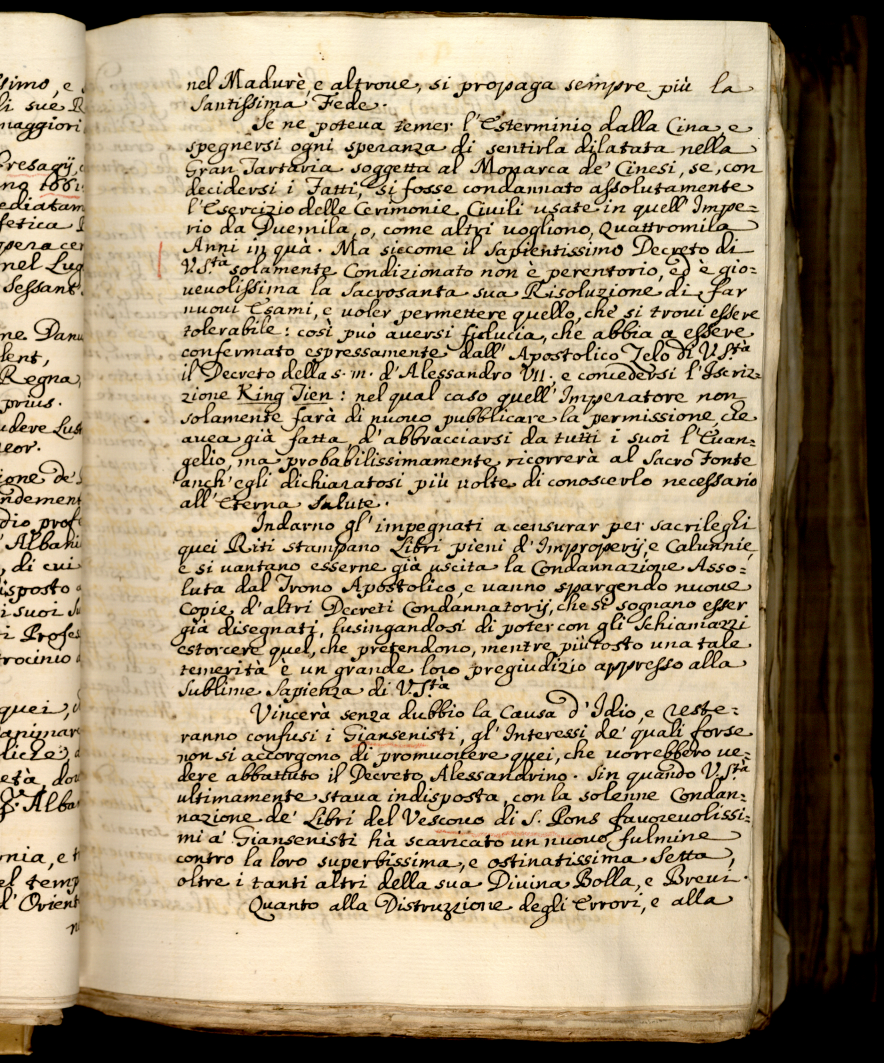 simo, e
li sue R
maggiori
Presagij,
no 1661
ediatam
fetica
pera cer
nel Lug
Sessant
ne Danu
lent,
Regna,
prius.
udere Lus
eor.
ione de'
ndement
dio prof
Albani
, di cui
isposto
i suoi
ti Profes
trocinio
quei,
animar
liche
età, dov
Alba
rnia, e t
el temp
d'Orient
nel Madurè, e altroue, si propaga sempre più la
Santissima Fede.
Se ne poteua temer l'Esterminio dalla Cina, e
spegnersi ogni speranza di sentirla dilatata nella
Gran Tartaria soggetta al Monarca de' Cinesi, se, con
decidersi i Fatti, si fosse condannato assolutamente
l'Esercizio delle Cerimonie Ciuili usate in quell'Impe=
rio da Duemila, o, come altri uogliono, Quattromila
Anni in quà. Ma siccome il Sapientissimo Decreto di
V.Stà solamente Condizionato non è perentorio, ed è gio=
ueuolissima la Sacrosanta sua Risoluzione di far
nuoui Esami, e uoler permettere quello, che si troui essere
tolerabile: così può auersi fiducia, che abbia a essere
confermato espressamente dall'Apostolico Zelo di V.Stà
il Decreto della s. m. d'Alessandro VII. e concedersi l'Iscriz=
zione King Tien: nel qual caso quell'Imperatore non
solamente farà di nuouo pubblicare la permissione, che
auea già fatta, d'abbracciarsi da tutti i suoi l'Euan=
gelio, ma probabilissimamente ricorrerà al Sacro Fonte
anch'egli dichiaratosi più uolte di conoscerlo necessario
all'Eterna Salute.
Indarno gl'impegnati a censurar per sacrileghi
quei Riti stampano Libri pieni d'Improperij, e Calunnie,
e si uantano esserne già uscita la Condannazione Asso=
luta dal Trono Apostolico, e uanno spargendo nuoue
Copie d'altri Decreti Condannatorij, che si sognano esser
già disegnati, lusingandosi di poter con gli Schiamazzi
estorcere quel, che pretendono, mentre più tosto una tale
temerità è un grande loro pregiudizio appresso alla
Sublime Sapienza di V.Stà
Vincerà senza dubbio la Causa d'Idio, e reste=
ranno confusi i Giansenisti, gl'Interessi de' quali forse
non si accorgono di promuouere quei, che uorrebbero ue=
dere abbattuto il Decreto Alessandrino. Sin quando V.Stà
ultimamente staua indisposta, con la solenne Condan=
nazione de' Libri del Vescouo di S. Pons fauoreuolissi=
mi a' Giansenisti hà scaricato un nuouo fulmine
contro la loro superbissima, e ostinatissima Setta,
oltre i tanti altri della sua Diuina Bolla, e Breui.
Quanto alla Distruzzione degli Errori, e alla